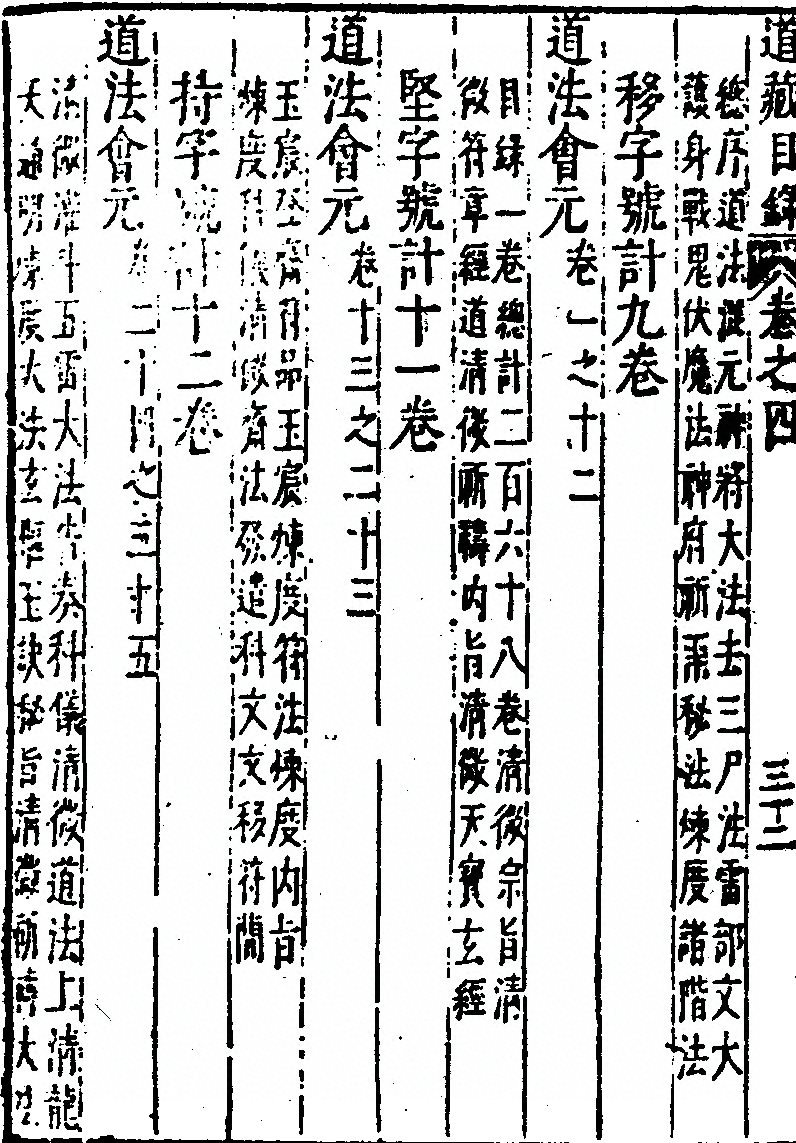 道藏目錄卷之四 三十二
總序道法混元神將大法去三尸法雷部文大
護身戰鬼伏魔法神府祈禀秘法煉度諸階法
移字號計九卷
道法會元卷一之十二
目錄一卷總計二百六十八卷清微宗旨清
微符章經道清微祈禱內旨清微天寶玄經
堅字號計十一卷
道法會元卷十三之二十三
玉宸登齋符品玉宸煉度符法煉度內旨
煉度科儀清微齋法發遣科文文移符簡
持字號計十二卷
道法會元卷二十四之三十五
清微灌斗五雷大法 奏科儀清微道法上清龍
天通明煉度大法玄 玉訣秘旨清微祈禱大法